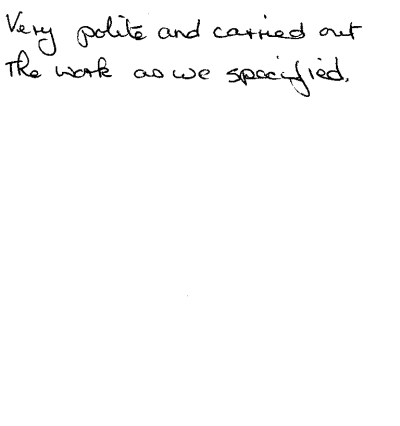 Very polite and carried out
The work as we specified.